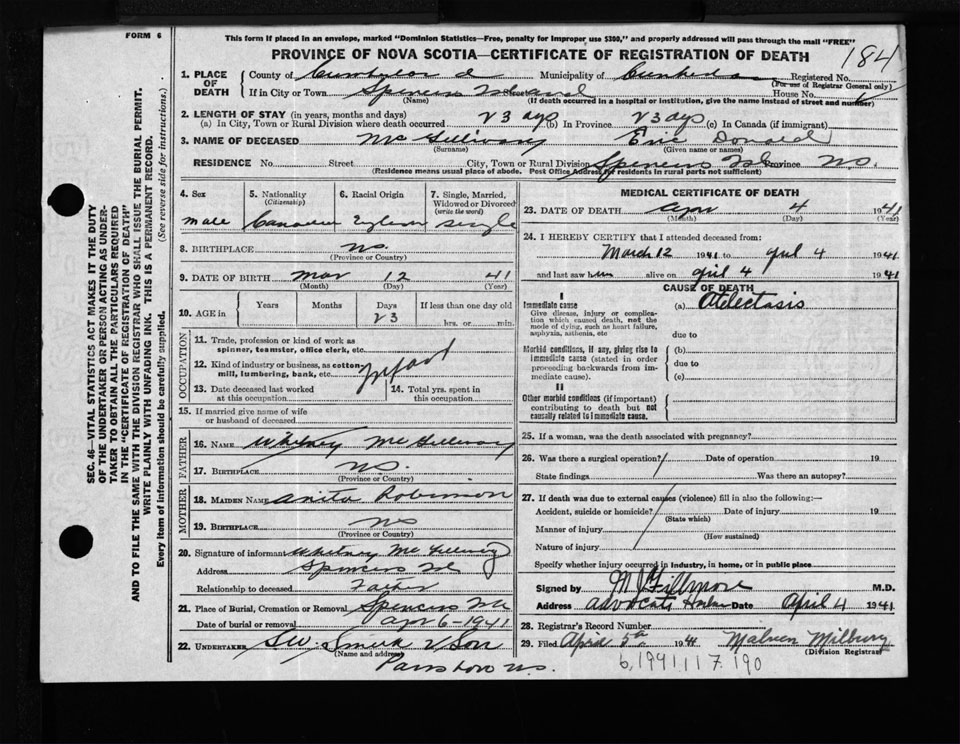 FORM 6
This form if placed in an envelope, marked "Dominion Statistics—Free, penalty for improper use $300," and properly addressed will pass through the mail "FREE"
PROVINCE OF NOVA SCOTIA—CERTIFICATE OF REGISTRATION OF DEATH
184
1. PLACE OF DEATH County of Cumberland Municipality of Cumberland Registered No.
(For use of Registrar General only)
If in City or Town Spencers Island House No.
(Name) (If death occurred in a hospital or institution, give the name instead of street and number)
2. LENGTH OF STAY (in years, months and days)
(a) In City, Town or Rural Division where death occurred 23 dys (b) In Province 23 dys (c) In Canada (if immigrant)
3. NAME OF DECEASED McGillivary Eric Donald
(Surname) (Given name or names)
RESIDENCE No. Street City, Town or Rural Division Spencers Isl Province NS.
(Residence means usual place of abode. Post Office Address for residents in rural parts not sufficient)
4. Sex 5. Nationality (Citizenship) 6. Racial Origin 7. Single, Married, Widowed or Divorced (write the word)
male Canadian single
8. BIRTHPLACE NS.
(Province or Country)
9. DATE OF BIRTH Mar 12 41
(Month) (Day) (Year)
10. AGE in Years Months Days If less than one day old
23 hrs. or min.
OCCUPATION
11. Trade, profession or kind of work as spinner, teamster, office clerk, etc.
12. Kind of industry or business, as cotton-mill, lumbering, bank, etc. Infant
13. Date deceased last worked at this occupation 14. Total yrs. spent in this occupation
15. If married give name of wife or husband of deceased
FATHER
16. NAME Whitney McGillivary
17. BIRTHPLACE NS.
(Province or Country)
MOTHER
18. MAIDEN NAME Anita Robinson
19. BIRTHPLACE NS
(Province or Country)
20. Signature of informant Whitney McGillivary
Address Spencers Isl
Relationship to deceased Father
21. Place of Burial, Cremation or Removal Spencers Isl
Date of burial or removal Apr 6-1941
22. UNDERTAKER Smith & Son
(Name and address)
Parrsboro NS.
MEDICAL CERTIFICATE OF DEATH
23. DATE OF DEATH Apr 4 1941
(Month) (Day) (Year)
24. I HEREBY CERTIFY that I attended deceased from:
March 12 1941 to April 4 1941
and last saw him alive on April 4 1941
CAUSE OF DEATH
I
Immediate cause (a) Atelectasis
Give disease, injury or complication which caused death, not the mode of dying, such as heart failure, asphyxia, asthenia, etc
due to
Morbid conditions, if any, giving rise to immediate cause (stated in order proceeding backwards from immediate cause).
(b)
due to
(c)
II
Other morbid conditions (if important) contributing to death but not causally related to immediate cause.
25. If a woman, was the death associated with pregnancy?
26. Was there a surgical operation? Date of operation 19
State findings Was there an autopsy?
27. If death was due to external causes (violence) fill in also the following:—
Accident, suicide or homicide? Date of injury 19
(State which)
Manner of injury
(How sustained)
Nature of injury
Specify whether injury occurred in industry, in home, or in public place
Signed by M J Fillmore M.D.
Address Advocate Harbor Date April 4 1941
28. Registrar's Record Number
29. Filed April 5th 1941 Malven Milbury
(Division Registrar)
6.1941.117.190
SEC. 46—VITAL STATISTICS ACT MAKES IT THE DUTY
OF THE UNDERTAKER OR PERSON ACTING AS UNDER-
TAKER TO OBTAIN ALL THE PARTICULARS REQUIRED
IN THE "CERTIFICATE OF REGISTRATION OF DEATH"
AND TO FILE THE SAME WITH THE DIVISION REGISTRAR WHO SHALL ISSUE THE BURIAL PERMIT.
WRITE PLAINLY WITH UNFADING INK. THIS IS A PERMANENT RECORD.
Every item of information should be carefully supplied. (See reverse side for instructions.)